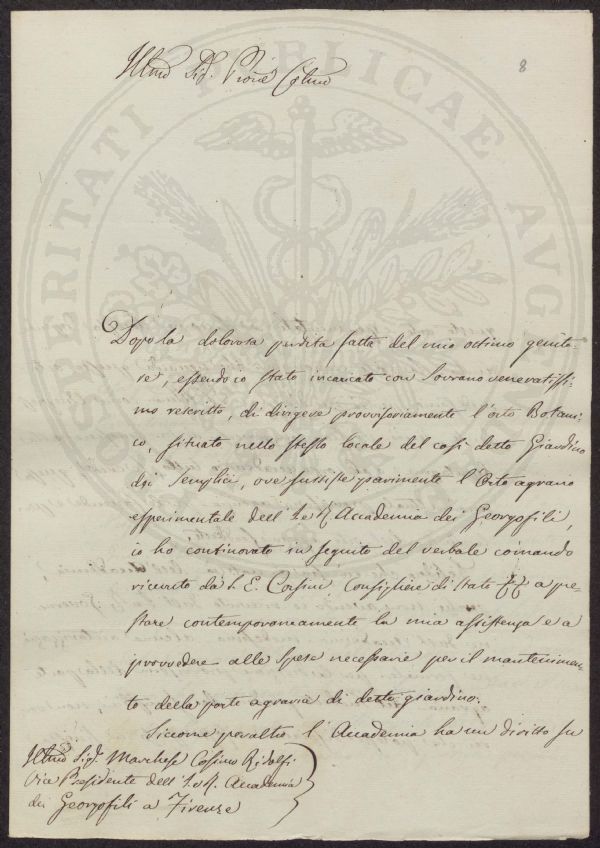 8
Illmo Sig. Prone Colmo
Dopo la dolorosa perdita fatta del mio ottimo genito-
re, essendo io stato incaricato con Sovrano veneratissi-
mo rescritto, di dirigere provvisoriamente l'orto Botani-
co, situato nello stesso locale del così detto Giardino
dei Semplici, ove sussiste parimente l'Orto agrario
esperimentale dell'I. e R. Accademia dei Georgofili,
io ho continovato in seguito del verbale comando
ricevuto da S. E. Corsini, Consigliere di Stato &c a pre-
stare contemporaneamente la mia assistenza e a
provvedere alle spese necessarie per il mantenimen-
to della parte agraria di detto giardino.
Siccome peraltro l'Accademia ha un diritto su
Illmo Sig. Marchese Cosimo Ridolfi
Vice Presidente dell'I. e R. Accademia
dei Georgofili a Firenze
PROSPERITATI PUBLICAE AUG